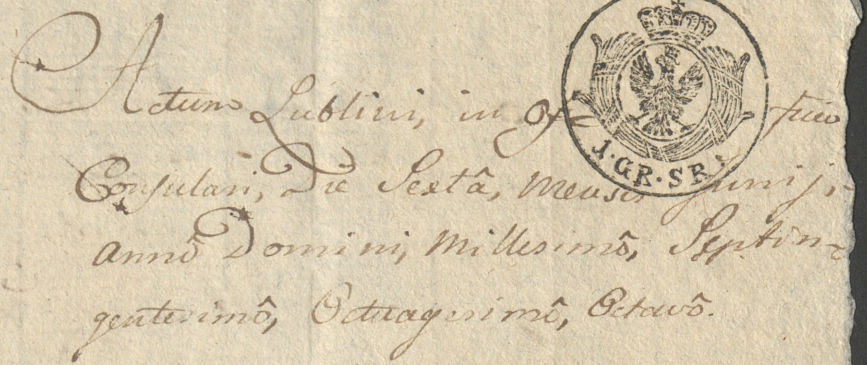 Actum Lublini, in Officio
1·GR·SR·
Consulari, Die Sextâ, Mensis Junij,
annô Domini, Millesimô, Septin-
gentesimô, Octuagesimô, Octavô.